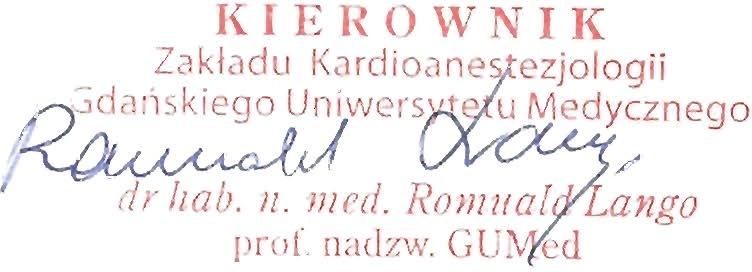 KIEROWNIK
Zakładu Kardioanestezjologii
Gdańskiego Uniwersytetu Medycznego
Romuald Lango
dr hab. n. med. Romuald Lango
prof. nadzw. GUMed